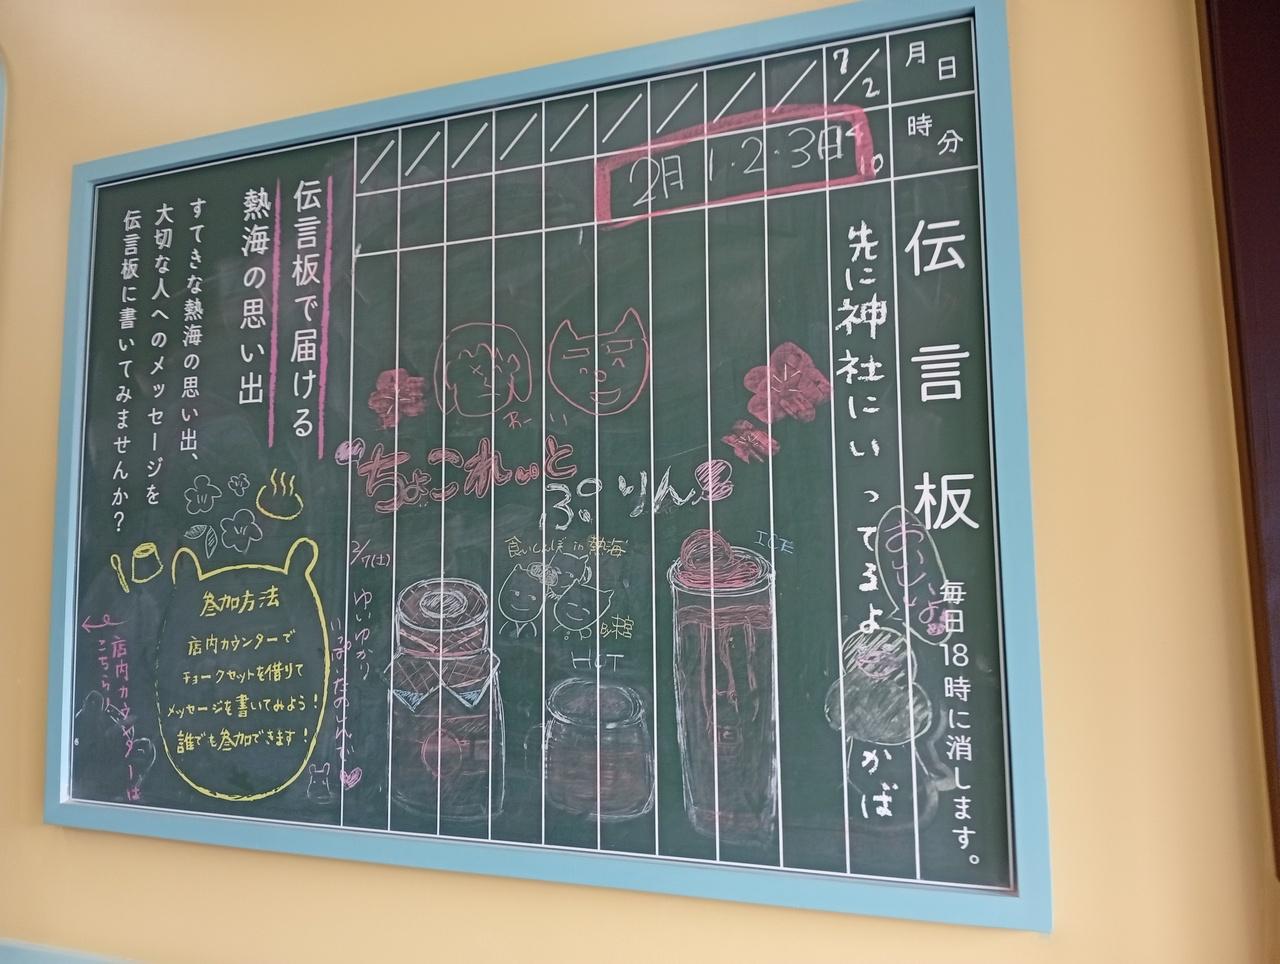 月 日
時 分
伝言板
毎日18時に消します。
7/2
10
先に神社にいってるよ
かば
2月1・2・3日
ちょこれいと
ぷりん
食いしんぼ in 熱海
味宮
HOT
ICE
2/7(土)
伝言板で届ける
熱海の思い出
すてきな熱海の思い出、
大切な人へのメッセージを
伝言板に書いてみませんか?
参加方法
店内カウンターで
チョークセットを借りて
メッセージを書いてみよう!
誰でも参加できます!
店内カウンターは
こちら!